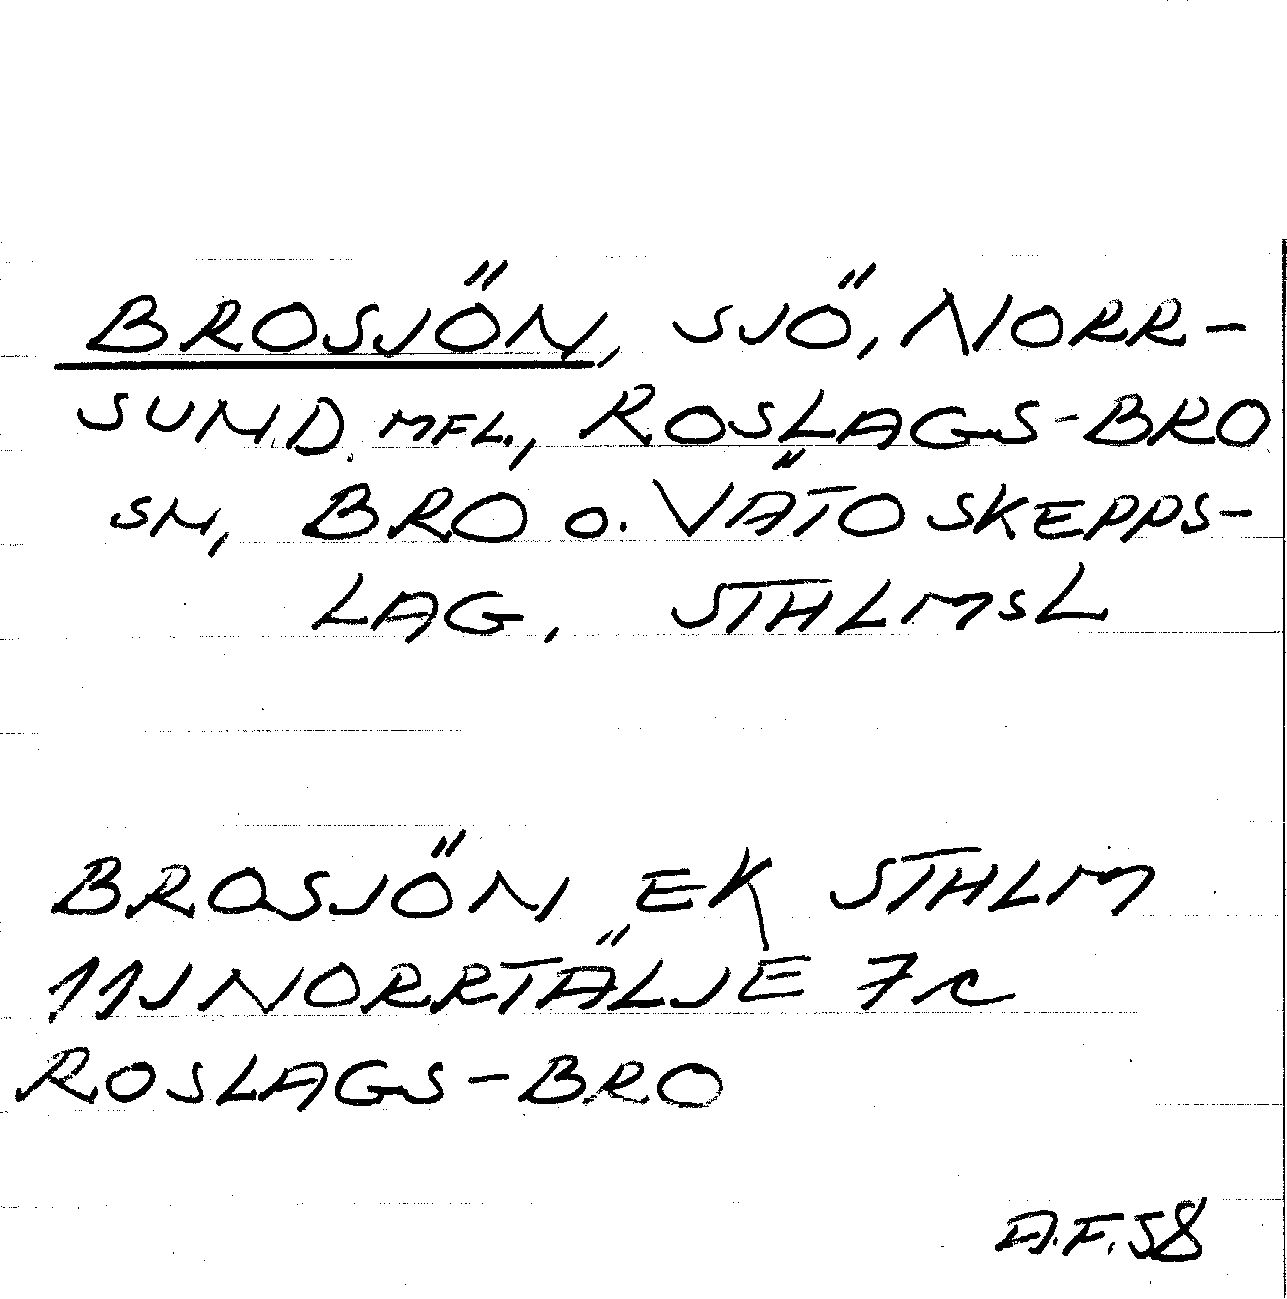 BROSJÖN, SJÖ, NORR-
SUND MFL., ROSLAGS-BRO
SN, BRO O. VÄTO SKEPPS-
LAG, STHLMSL
BROSJÖN EK STHLM
11J NORRTÄLJE 7c
ROSLAGS-BRO
A.F. 58